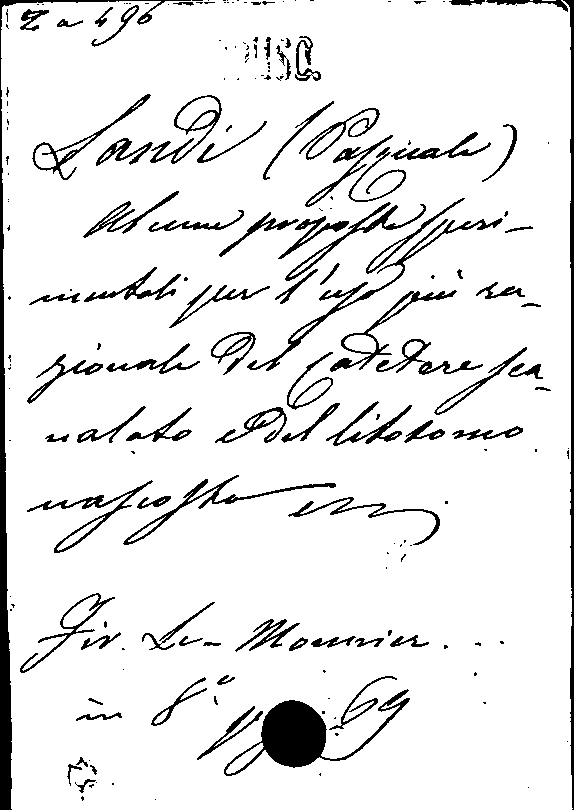 Z a 496
MISC.
Landi (Pasquale)
Alcune proposte speri-
mentali per l'uso più ra-
zionale del catetere sca-
nalato e del litotomo
nascosto
Fir. Le-Monnier. . .
in 8.° pg 69